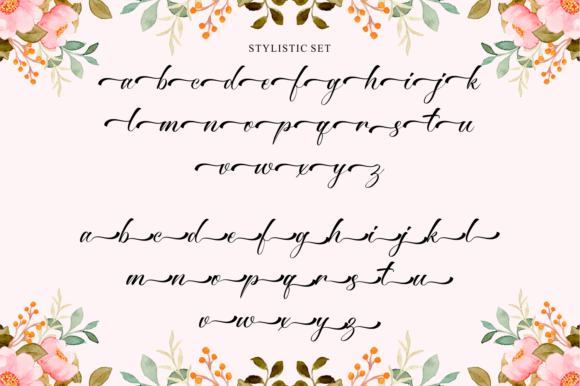 STYLISTIC SET
a b c d e f g h i j k
l m n o p q r s t u
v w x y z
a b c d e f g h i j k l
m n o p q r s t u
v w x y z